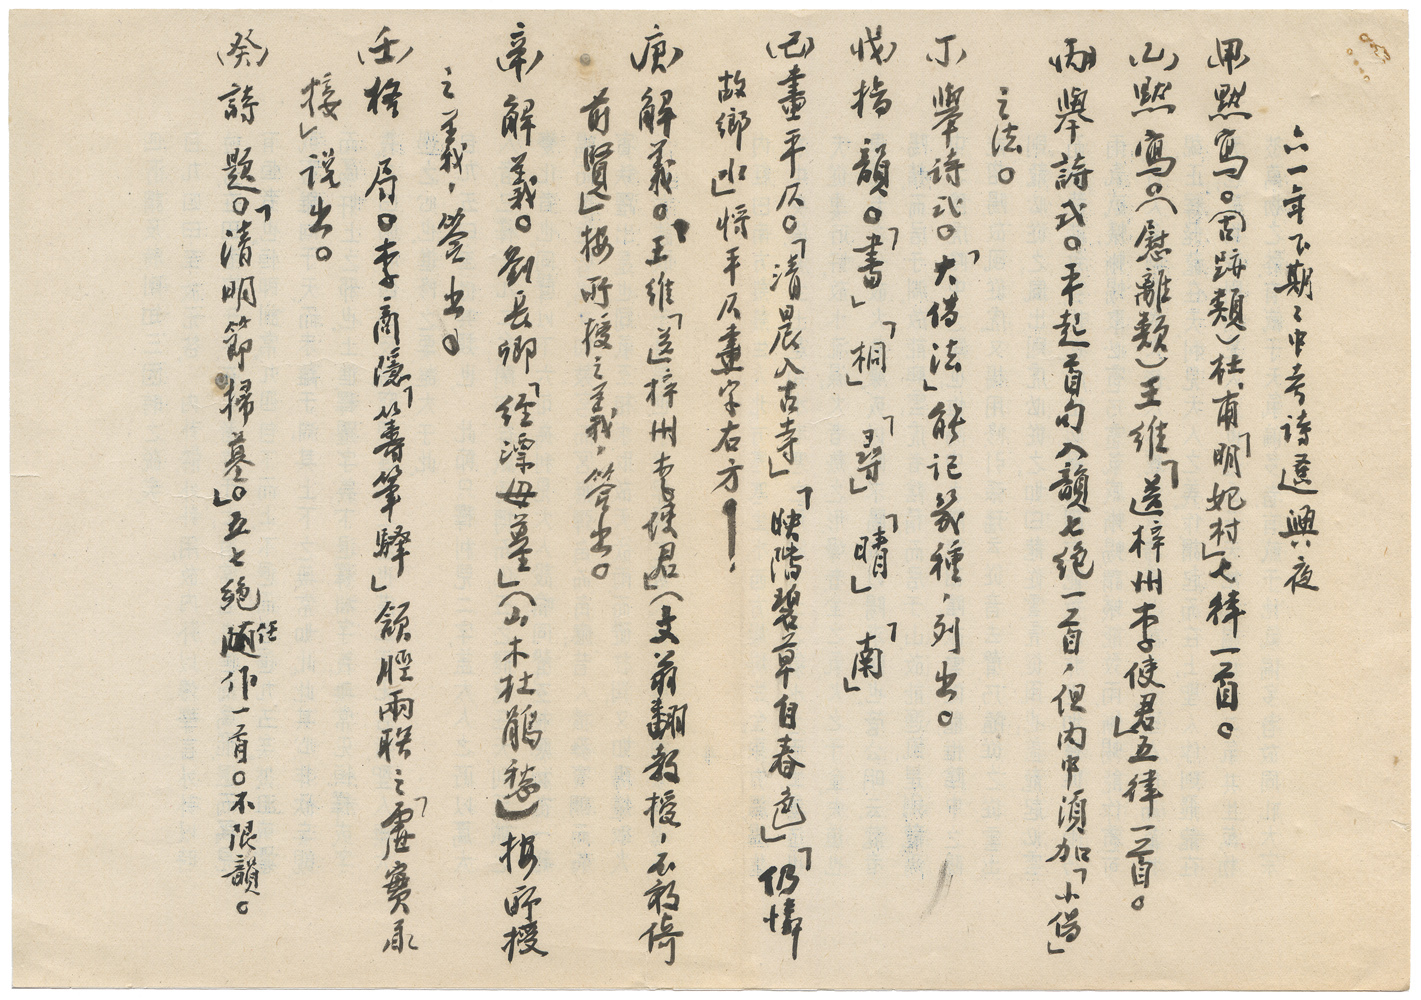 六一年下期期中考詩選興夜
(甲)默寫。(固跡類)杜甫「明妃村」七律一首。
(乙)默寫。(慰離類)王維「送梓州李使君」五律一首。
(丙)舉詩式。平起首句入韻七絕一首，但內中須加「小借」
之法。
(丁)舉詩式。「大借法」能記幾種，列出。
(戊)指韻。「書」「桐」「尋」「晴」「南」
(己)畫平仄。「清晨入古寺」「映階碧草自春色」「仍憐
故鄉水」將平仄畫字右方！
(庚)解義。王維「送梓州李使君」(文翁翻教授，不敢倚
前賢」)按所授之義，答出。
(辛)解義。劉長卿「經漂母墓」(山木杜鵑愁)按所授
之義，答出。
(壬)格局。李商隱「籌筆驛」頷脛兩聯之「虛實承
接」說出。
(癸)詩題。「清明節掃墓。」五七絕任隨作一首。不限韻。